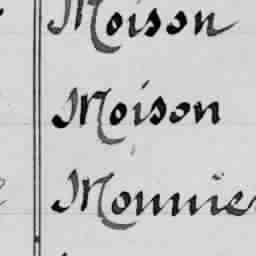 Moison
Moison
Monnier